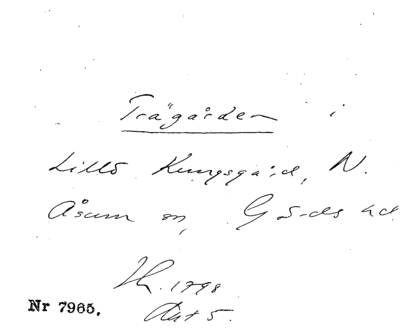 Trägården i
Lillö Kungsgård, N.
Åsum sn, G5-ds hd
1798
Nr 7965.